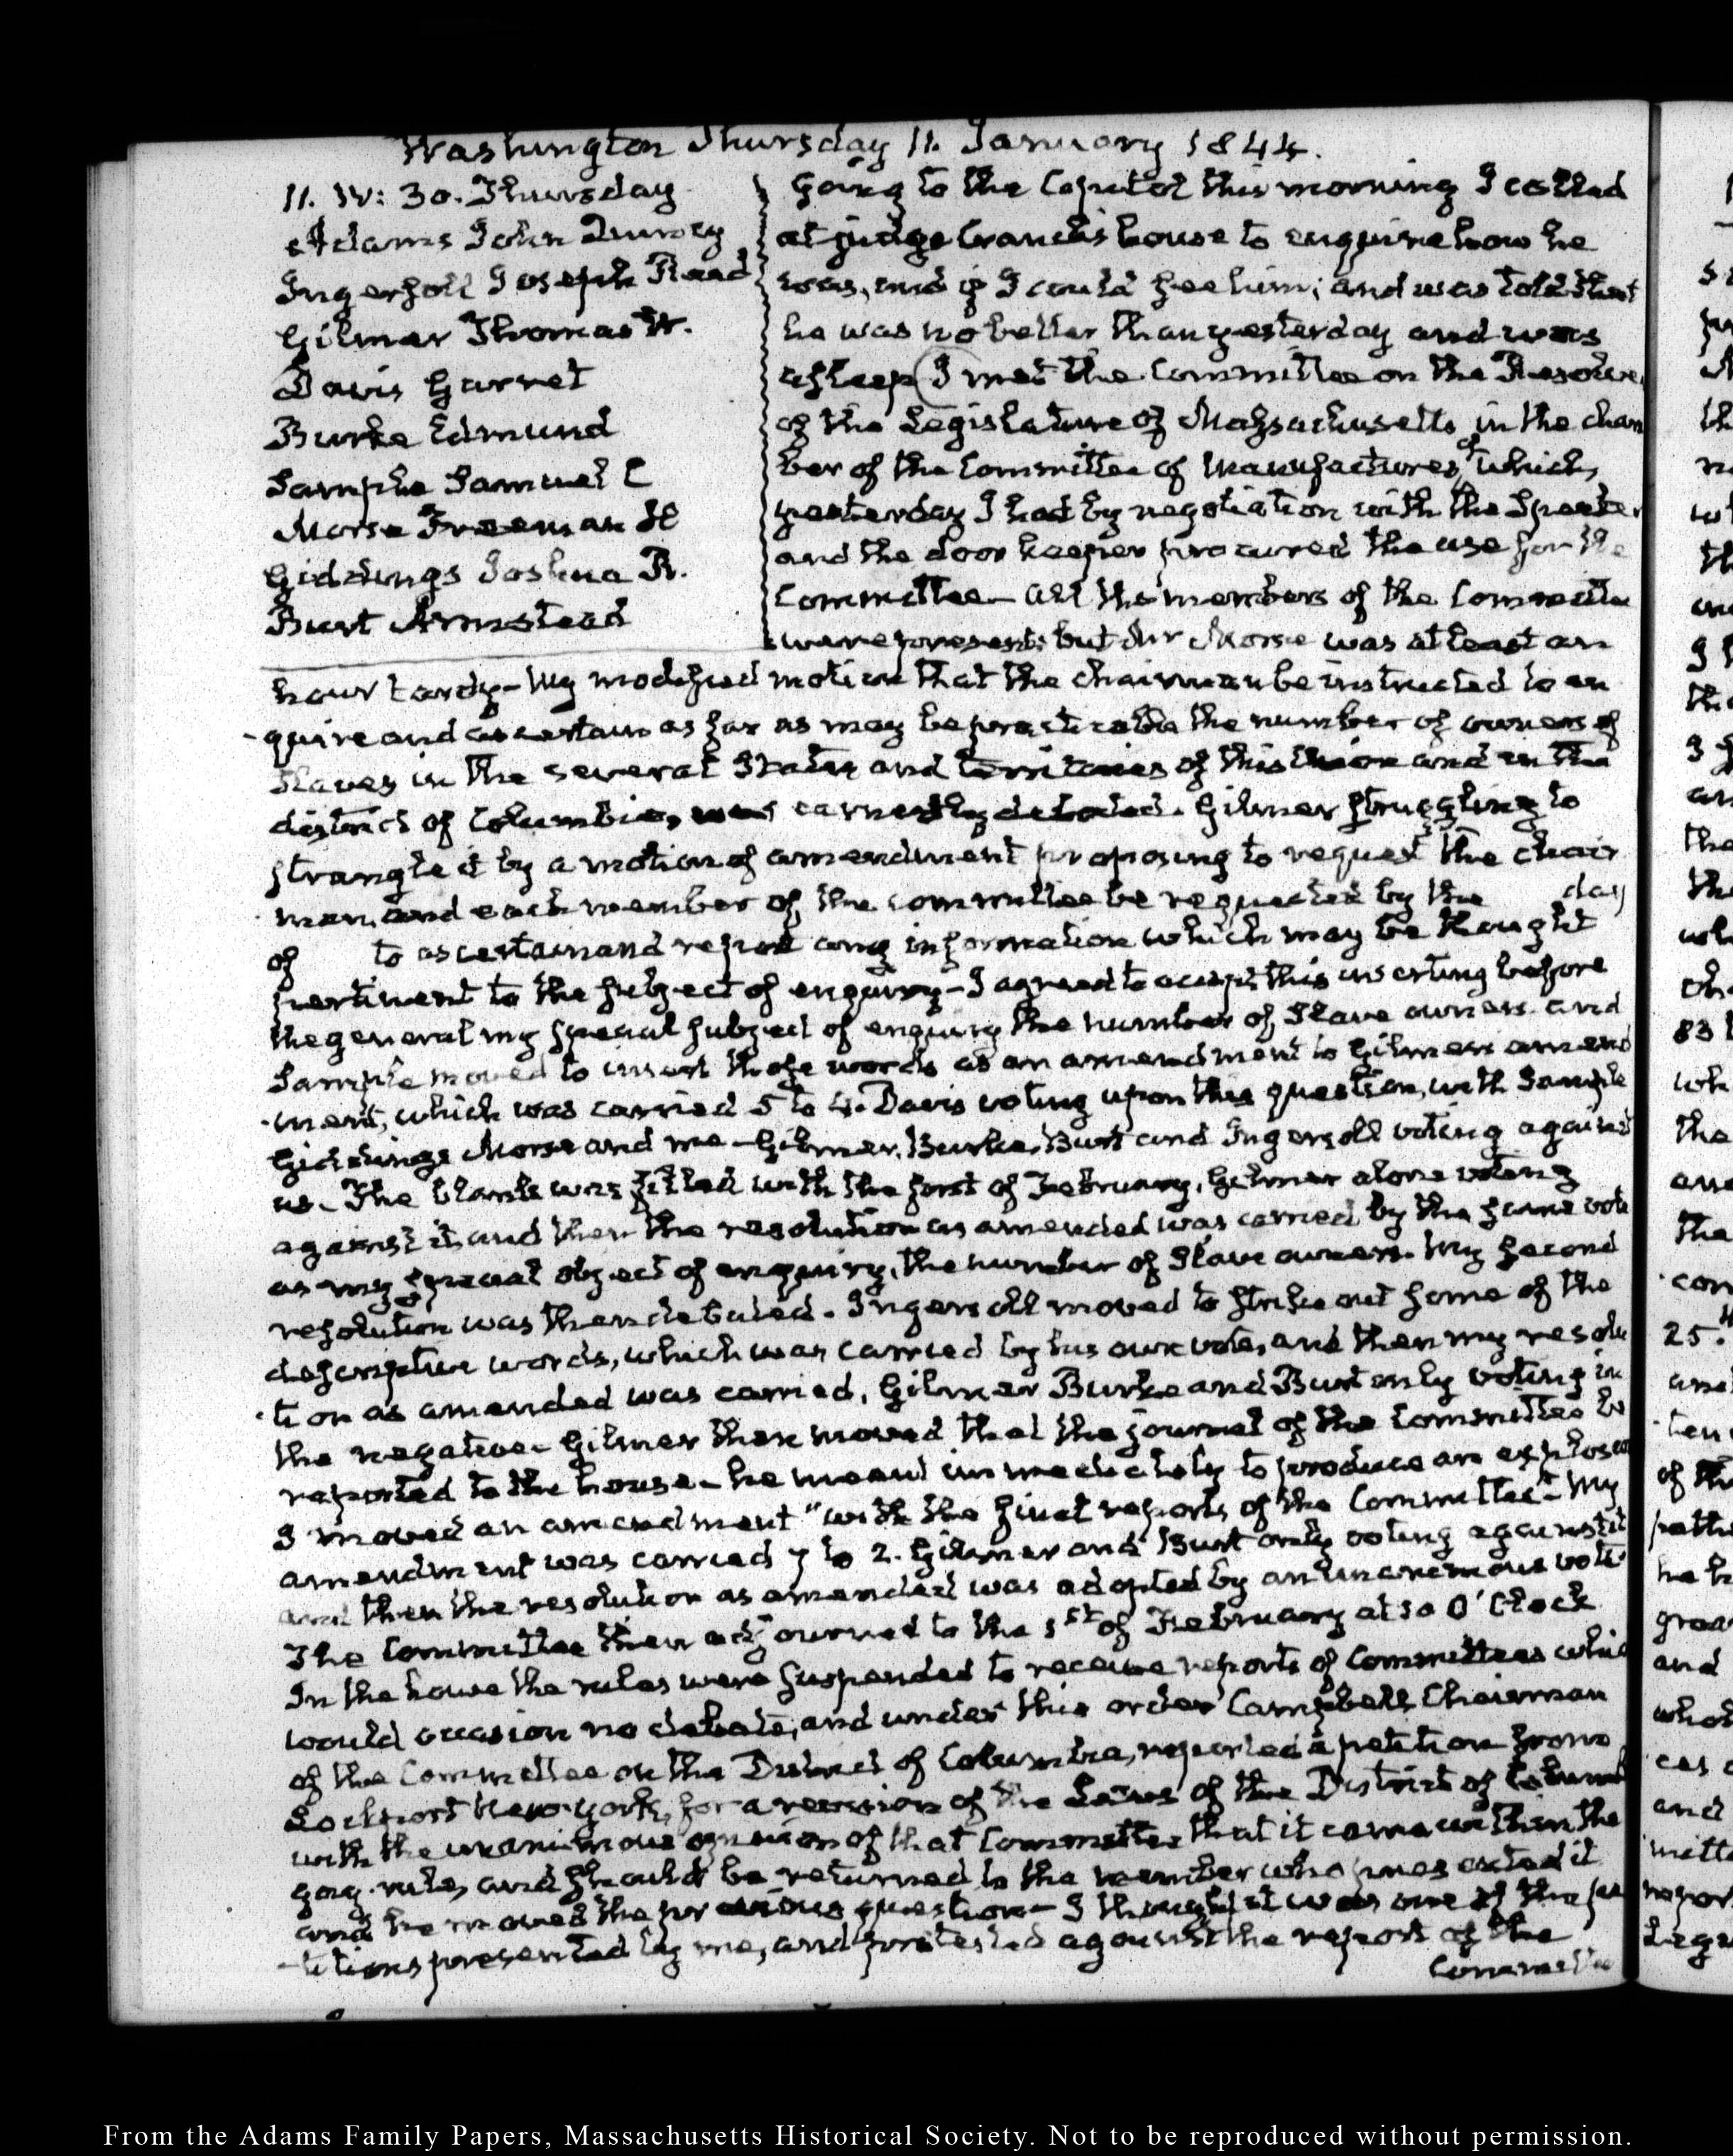 Washington Thursday 11. January 1844.
11. IV: 30. Thursday
Adams John Quincy
Ingersoll Joseph Reed
Gilmer Thomas W.
Davis Garret
Burke Edmund
Sample Samuel C
Morse Freeman H
Giddings Joshua R.
Burt Armstead
Going to the Capitol this morning I called
at judge Cranch's house to enquire how he
was, and if I could see him; and was told that
he was no better than yesterday and was
asleep (I met the Committee on the Resolves
of the Legislature of Massachusetts in the cham
ber of the Committee of Manufactures, of which,
yesterday I had by negotiation with the Speaker
and the door keeper procured the use for the
Committee— All the members of the Committee
were present: but Mr Morse was at least an
hour tardy— My modified motion that the chairman be instructed to en
-quire and ascertain as far as may be practicable the number of owners of
Slaves in the several States and territories of this Union and in the
district of Columbia, was earnestly debated. Gilmer struggling to
strangle it by a motion of amendment proposing to request the chair
man, and each member of the committee be requested by the day
of to ascertain and report any information which may be thought
pertinent to the subject of enquiry— I agreed to accept this inserting before
the general my special subject of enquiry the number of Slave owners. and
Sample moved to insert those words as an amendment to Gilmer's amend
-ment, which was carried 5 to 4. Davis voting upon this question, with Sample
Giddings Morse and me— Gilmer, Burke, Burt and Ingersoll voting against
us. The blank was filled with the first of February, Gilmer alone voting
against it, and then the resolution as amended was carried by the same vote
as my special object of enquiry, the number of Slave owners. My second
resolution was then debated. Ingersoll moved to strike out some of the
descriptive words, which was carried by his own vote, and then my resolu
-tion as amended was carried, Gilmer Burke and Burt only voting in
the negative— Gilmer then moved that the journal of the Committee be
reported to the house— he meant immediately to produce an explosion
I moved an amendment "with the final reports of the Committee"— My
amendment was carried 7 to 2. Gilmer and Burt only voting against it
and then the resolution as amended was adopted by an unanimous vote
The Committee then adjourned to the 1st of February at 10 O'Clock
In the house the rules were suspended to receive reports of Committees which
would occasion no debate, and under this order Campbell Chairman
of the Committee on the District of Columbia, reported a petition from
Lockport New-York, for a revision of the Laws of the District of Columbia
with the unanimous opinion of that Committee that it came within the
gag-rule, and should be returned to the member who presented it
and he moved the previous question— I thought it was one of the pe
-titions presented by me, and protested against the report of the
Committee
From the Adams Family Papers, Massachusetts Historical Society. Not to be reproduced without permission.